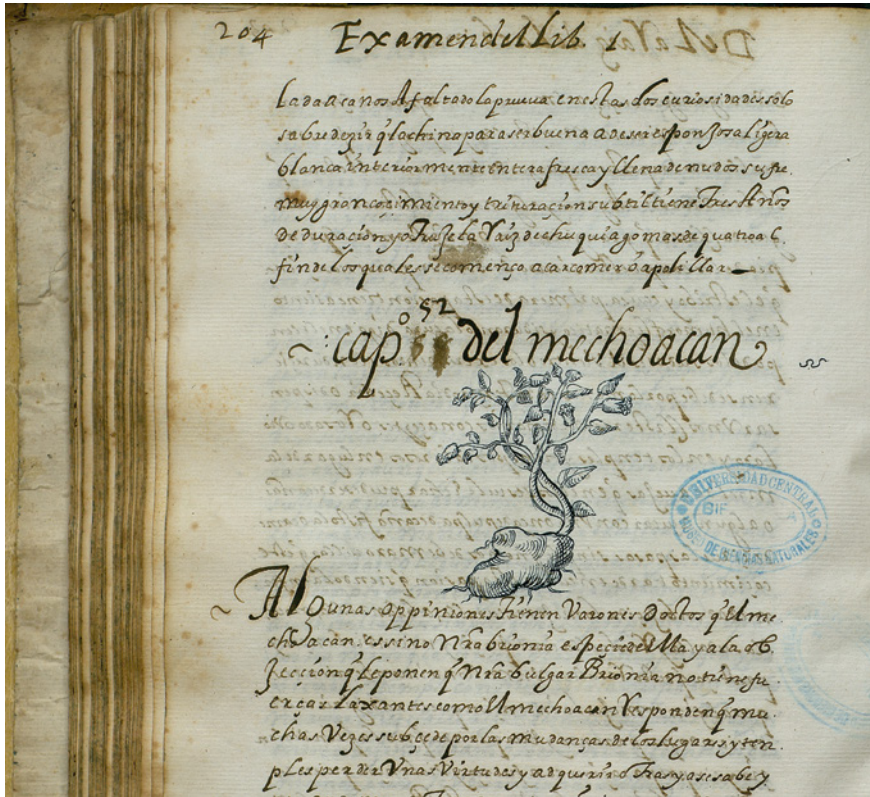 204 Examen del Lib. 1
lada aca nos A faltado la prueva en estas dos curiosidades solo
sabre dezir q̃ la china para ser buena a de ser esponJosa ligera
blanca interiormente entera fresca y llena de nudos sufre
muy gran coçimiento y trituraçion subtil tiene tres Años
de duraçion yo tuve la Raiz de chuquiago mas de quatro al
fin de los quales se començo a carcomer o apolillar
capº 52 del mechoacan
Algunas oppiniones tienen Varones Doctos q̃ el me
choacan es sino nr̃a brionia espeçie della y a la ob
jecçion q̃ le ponen q̃ nr̃a bulgar Brionia no tiene fu
erças laxantes como el mechoacan Responden q̃ mu
chas Vezes subçede por las mudanças de los lugares y ten
ples perder Unas Virtudes y adquerir otras ya se sabe y
UNIVERSIDAD CENTRAL
BIF
MUSEO DE CIENCIAS NATURALES